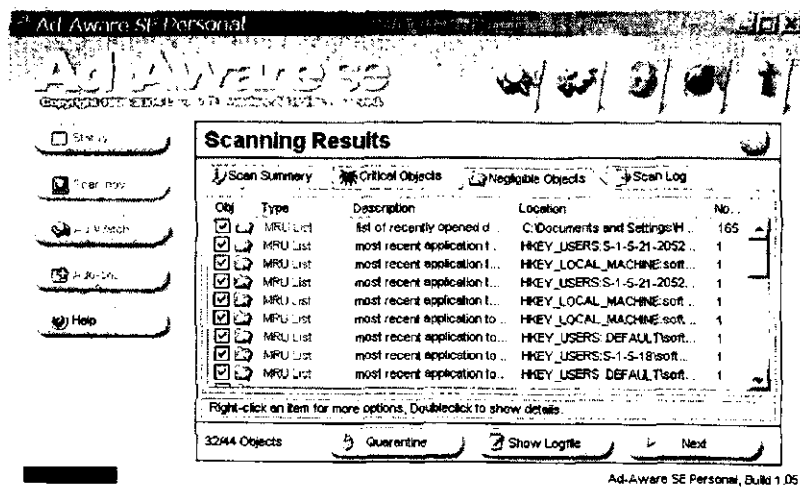 Ad-Aware SE Personal
Ad-Aware SE
Scanning Results
Status
Scan now
Ad-Watch
Help
Scan Summary Critical Objects Negligible Objects Scan Log
Obj Type Description Location No...
MRU List list of recently opened d... C:\Documents and Settings\H... 165
MRU List most recent application t... HKEY_USERS:S-1-5-21-2052... 1
MRU List most recent application t... HKEY_LOCAL_MACHINE:soft... 1
MRU List most recent application t... HKEY_USERS:S-1-5-21-2052... 1
MRU List most recent application t... HKEY_LOCAL_MACHINE:soft... 1
MRU List most recent application to... HKEY_LOCAL_MACHINE:soft... 1
MRU List most recent application to... HKEY_USERS:.DEFAULT\soft... 1
MRU List most recent application to... HKEY_USERS:S-1-5-18\soft... 1
MRU List most recent application to... HKEY_USERS:.DEFAULT\soft... 1
Right-click an item for more options, Doubleclick to show details.
32/44 Objects Quarantine Show Logfile Next
Ad-Aware SE Personal, Build 1.05